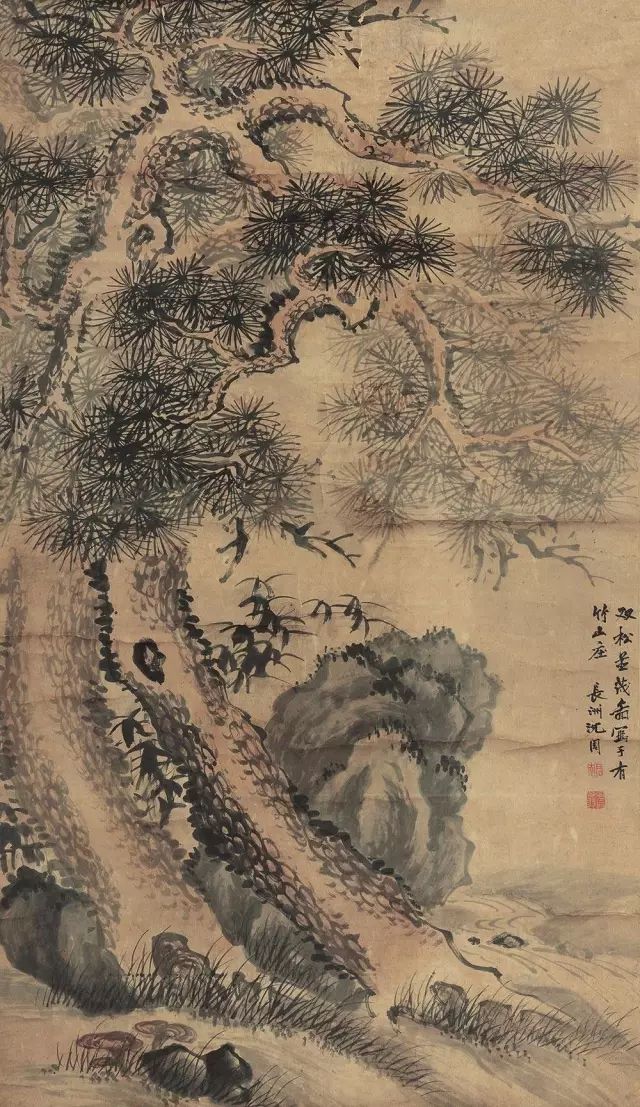 双松並茂图寫于有
竹山庄 長洲沈周